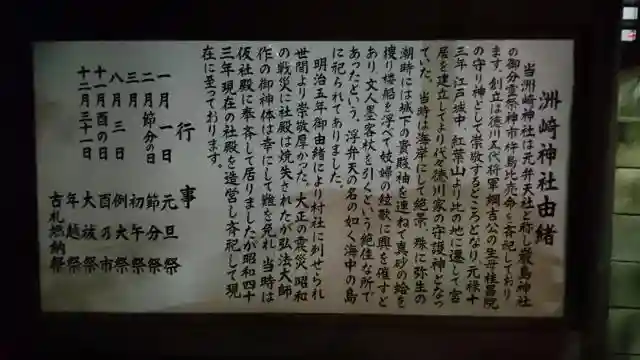 洲崎神社由緒
当洲崎神社は元弁天社と称し厳島神社
の御分霊祭神市杵島比売命を斉祀しており
ます。創立は徳川五代将軍綱吉公の生母桂昌院
の守り神として崇敬するところとなり、元禄十
三年江戸城中、紅葉山より此の地に遷して宮
居を建立してより代々徳川家の守護神となっ
ていた。当時は海岸にして絶景、殊に弥生の
潮時には城下の貴賤袖を連ねて真砂の蛤を
捜り楼船を浮べて妓婦の絃歌に興を催すと
あり、文人墨客杖を引くという絶佳な所で
あったという、浮弁天の名の如く海中の島
に祀られてありました。
明治五年御由緒により村社に列せられ
世間より崇敬厚かった。大正の震災昭和
の戦災に社殿は焼失されたが弘法大師
作の御神体は幸にして難を免れ、当時は
仮社殿に奉斉して居りましたが昭和四十
三年現在の社殿を造営し斉祀して現
在に至っております。
行事
一月一日 元旦祭
二月節分の日 節分祭
三月 初午祭
八月三日 例大祭
十一月酉の日 酉の市祭
十二月三十一日 大祓祭
年越祭
古札焼納祭